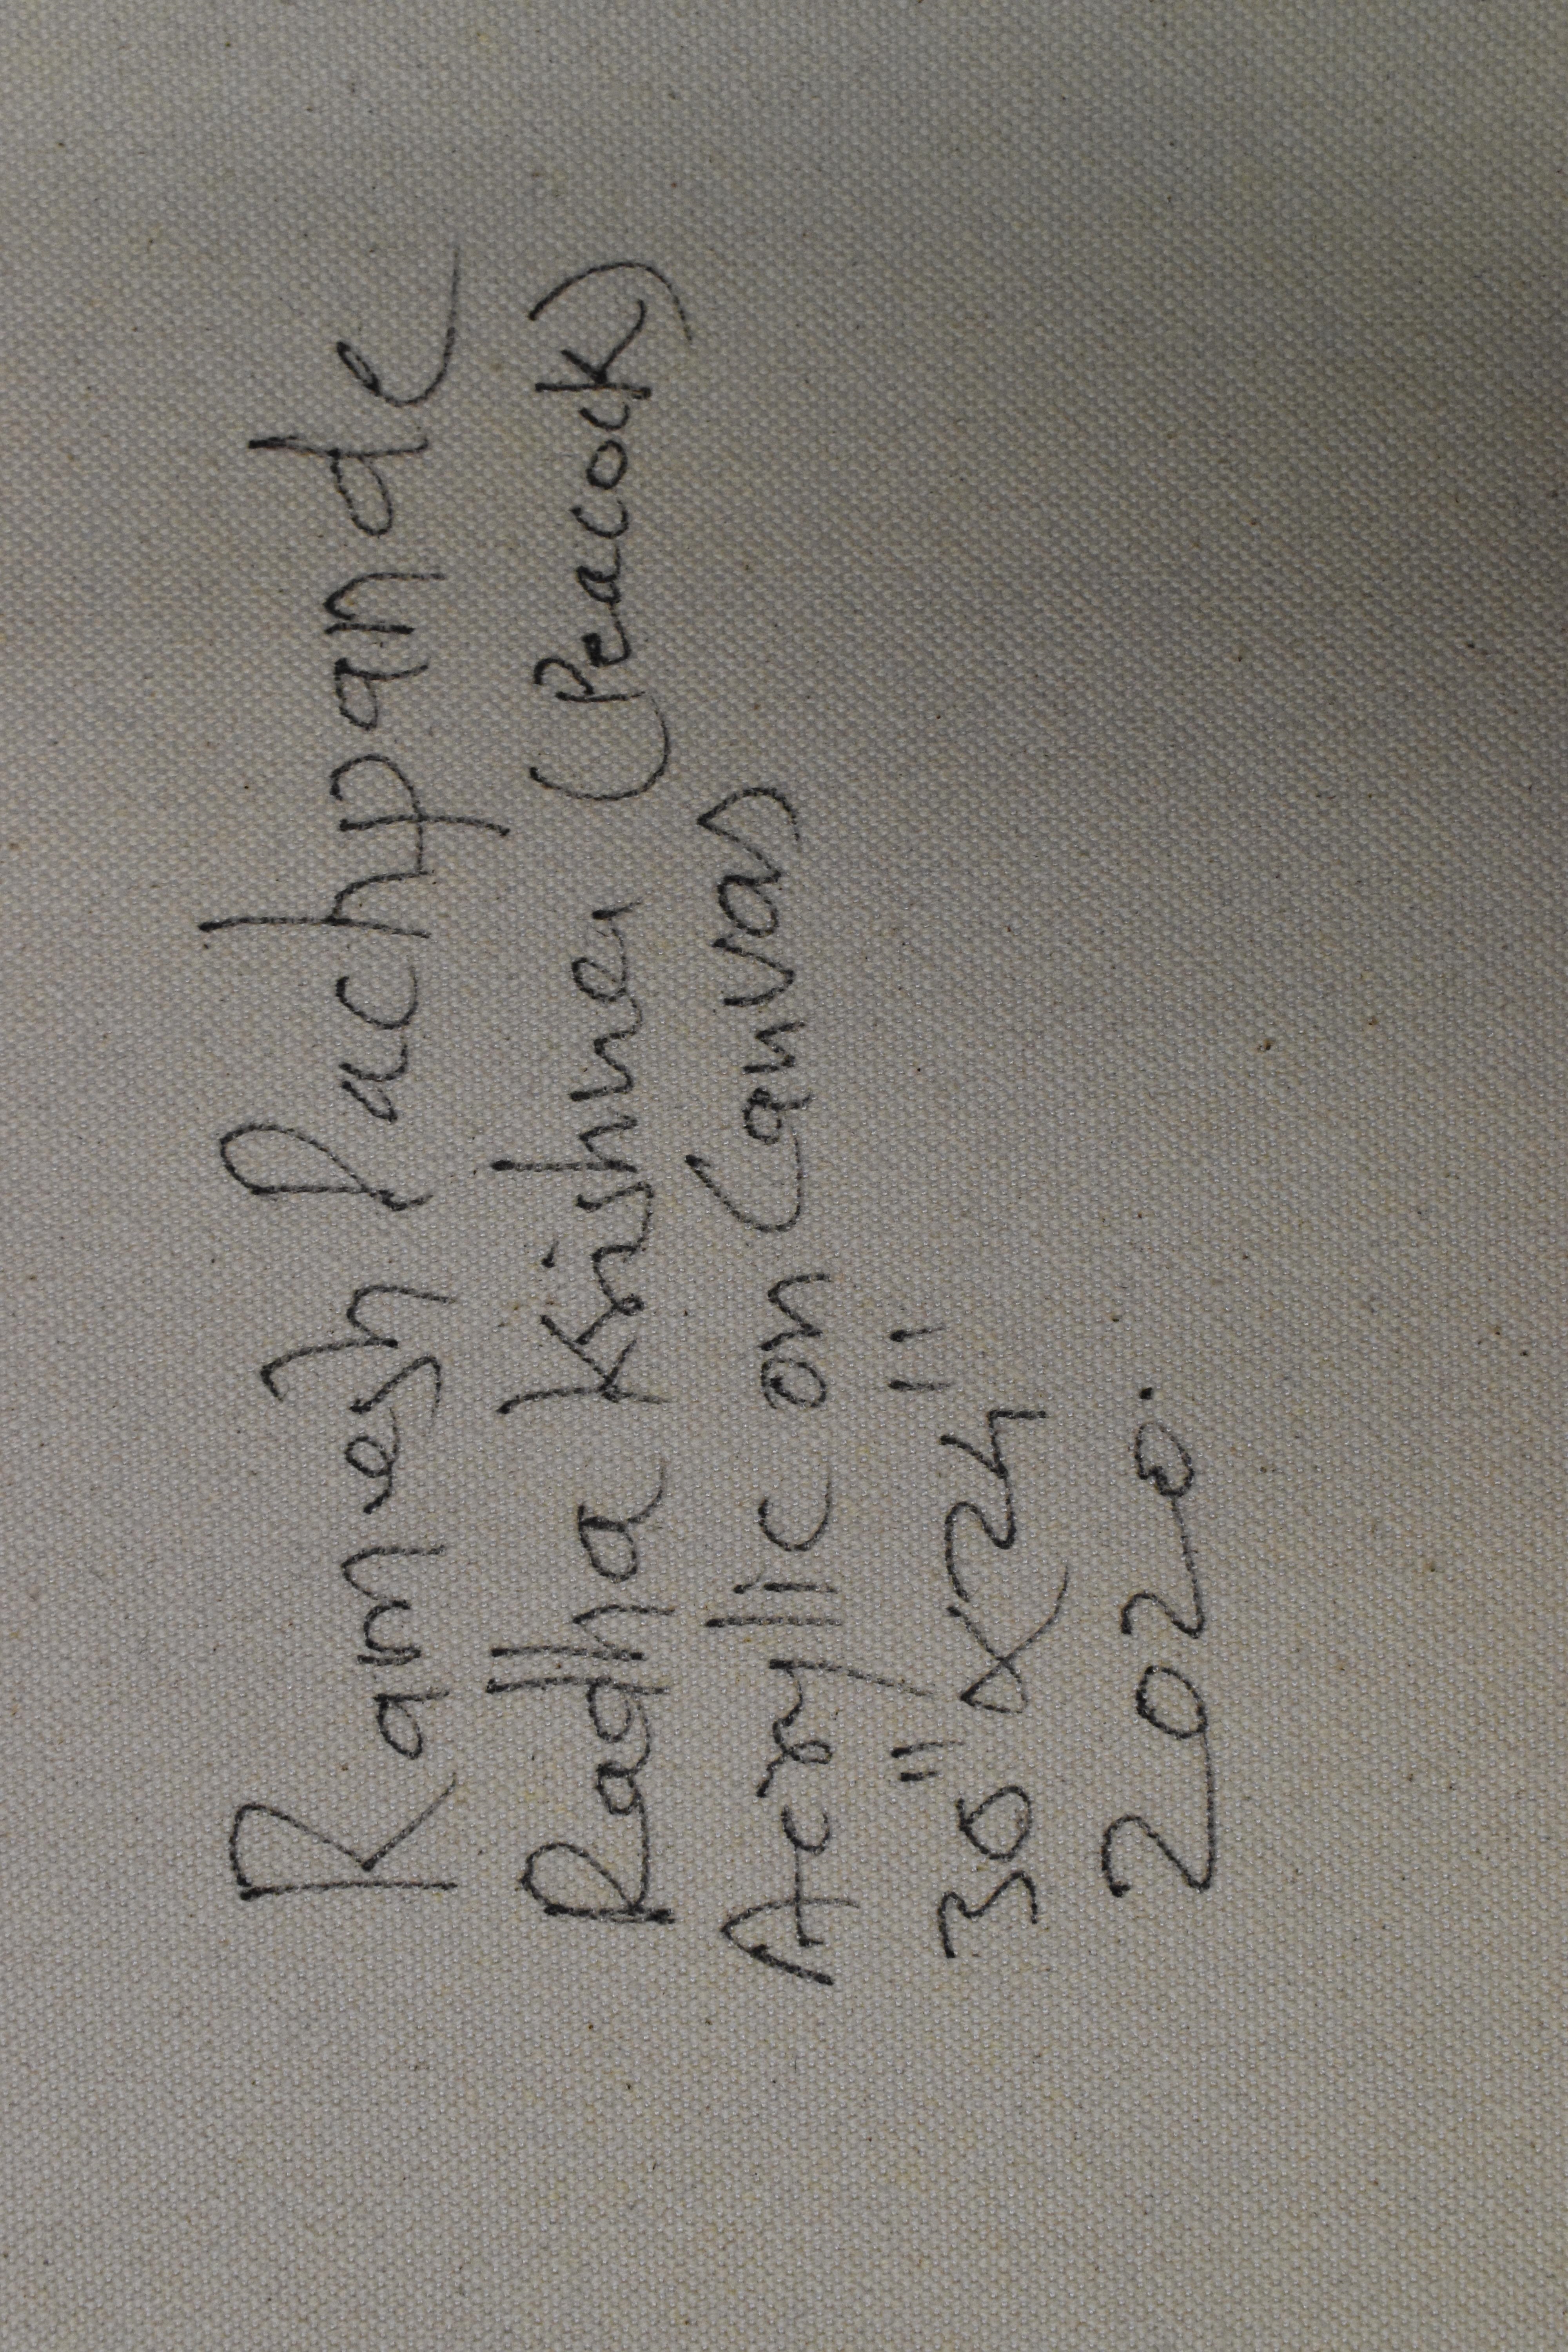 Ramesh Pachpande
Radha Krishna (Peacock)
Acryllic on Canvas
30" x 24"
2020.